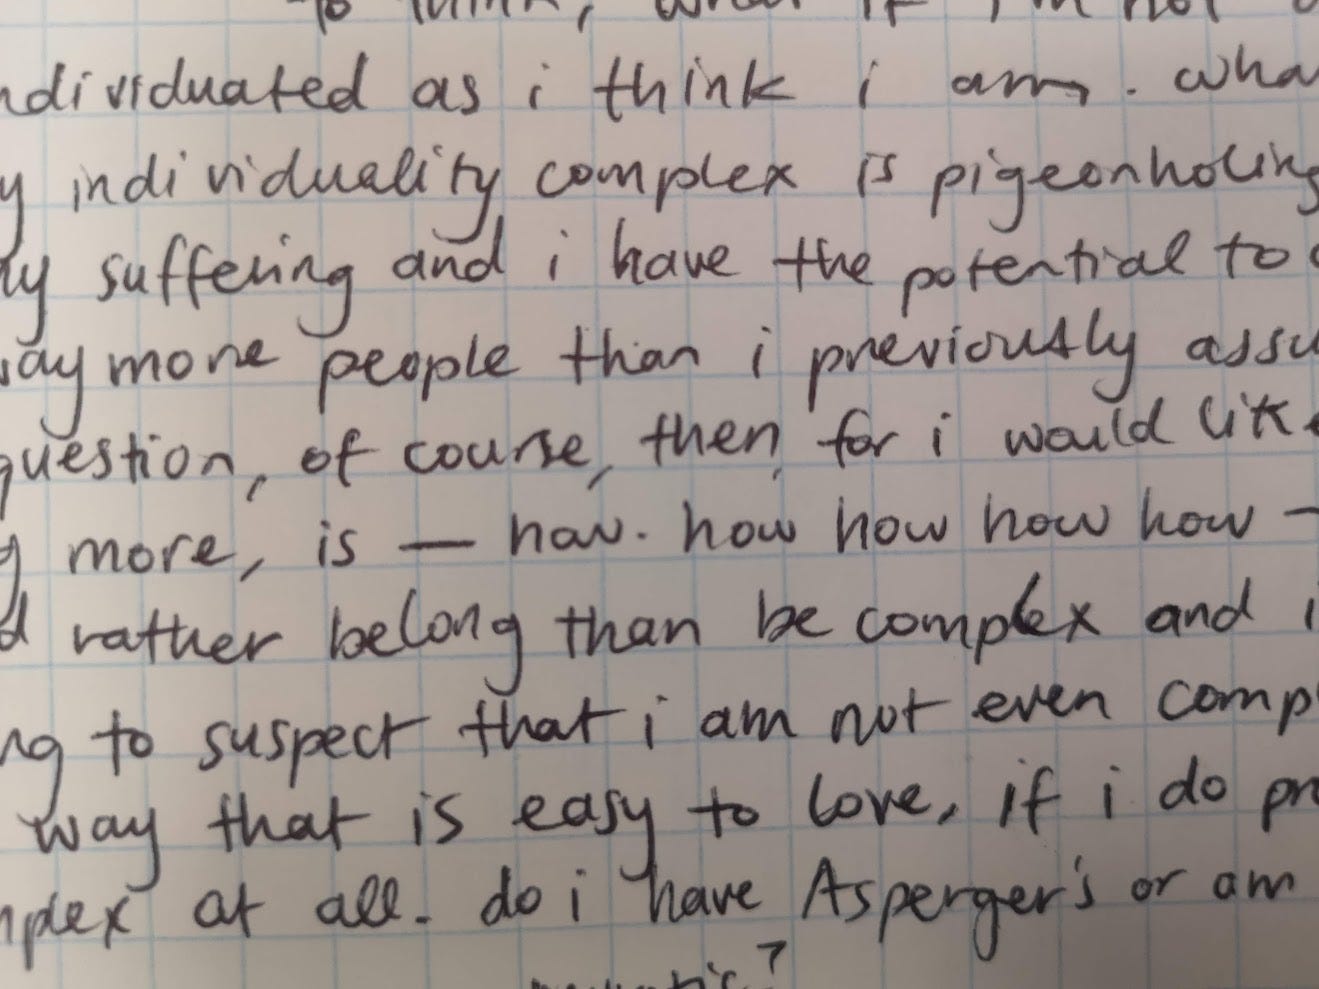 to think, what if i'm not
individuated as i think i am. wha
y individuality complex is pigeonholing
my suffering and i have the potential to
way more people than i previously assu
question, of course, then, for i would like
g more, is — how. how how how how —
d rather belong than be complex and i
ng to suspect that i am not even comp
way that is easy to love, if i do pr
mplex at all. do i have Asperger's or am
?